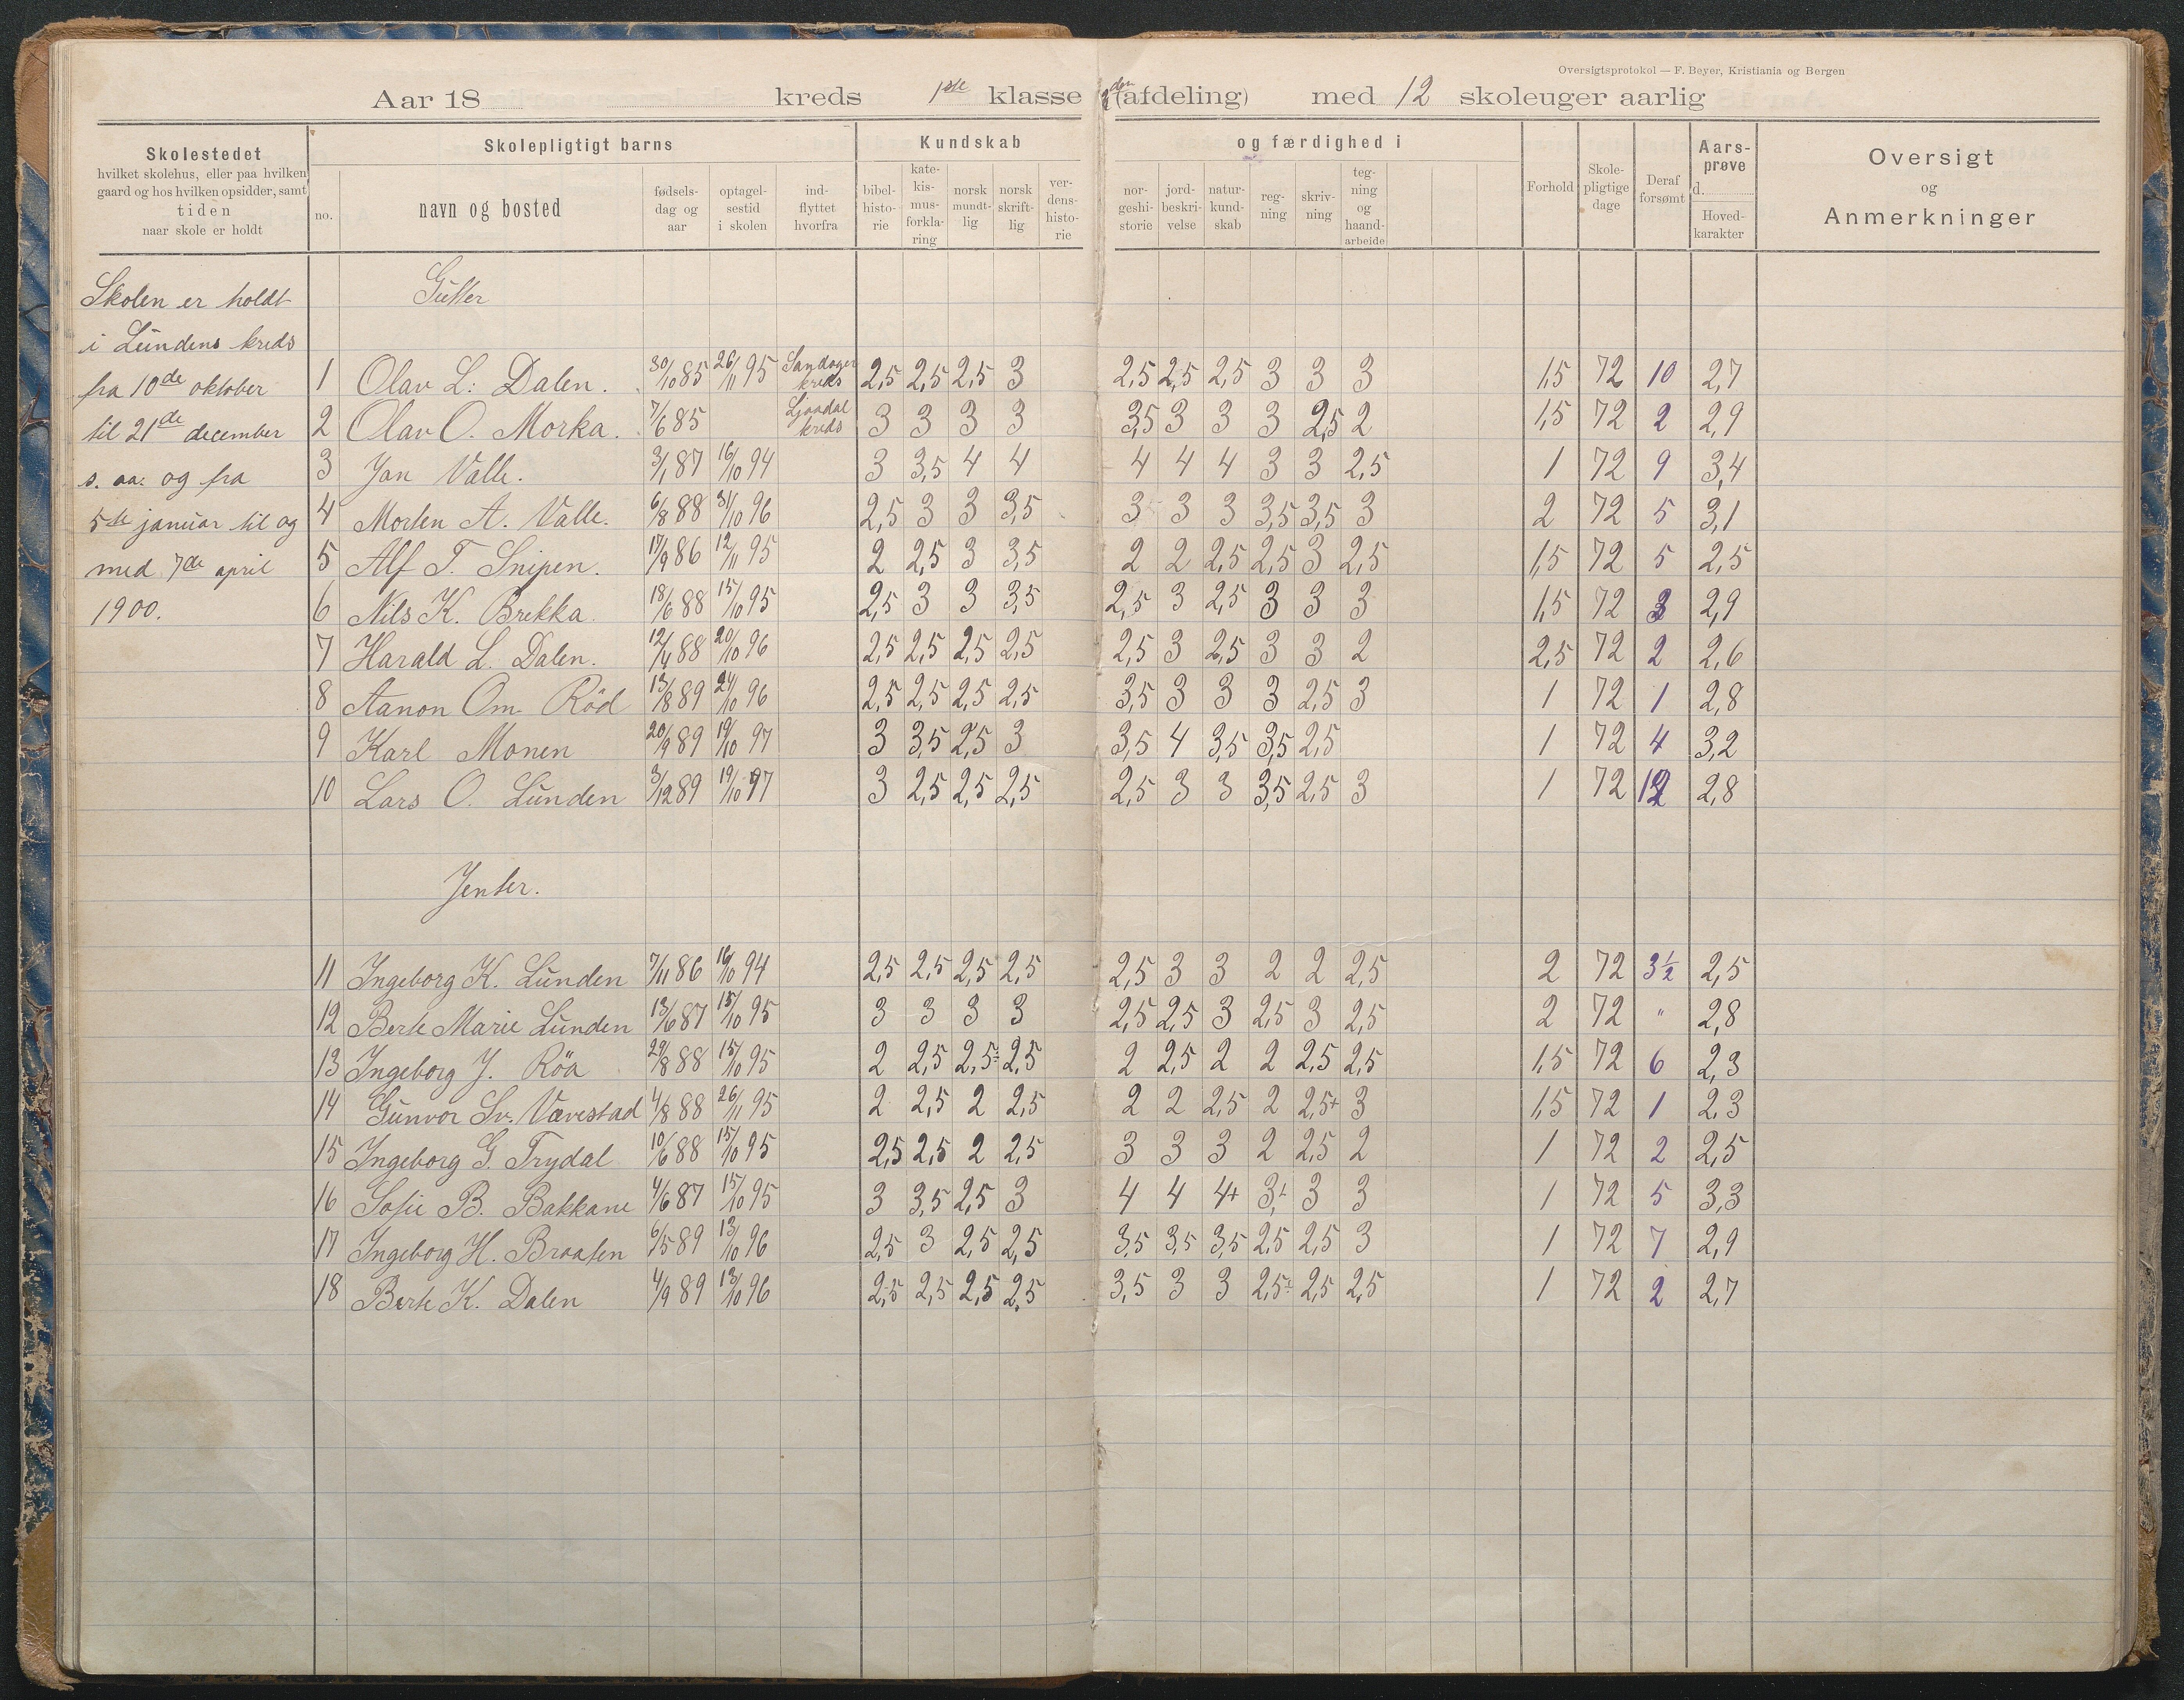 Oversigtsprotokol — F. Beyer, Kristiania og Bergen
Aar 18 kreds 1ste klasse (afdeling) med 12 skoleuger aarlig
Skolestedet
hvilket skolehus, eller paa hvilken
gaard og hos hvilken opsidder, samt
tiden
naar skole er holdt
Skolepligtigt barns
no.
navn og bosted
fødsels-
dag og
aar
optagel-
sestid
i skolen
ind-
flyttet
hvorfra
Kundskab
bibel-
histo-
rie
kate-
kis-
mus-
forkla-
ring
norsk
mundt-
lig
norsk
skrift-
lig
ver-
dens-
histo-
rie
og færdighed i
nor-
geshi-
storie
jord-
beskri-
velse
natur-
kund-
skab
reg-
ning
skriv-
ning
teg-
ning
og
haand-
arbeide
Forhold
Skole-
pligtige
dage
Deraf
forsømt
Aars-
prøve
d.
Hoved-
karakter
Oversigt
og
Anmerkninger
Skolen er holdt
i Lundens kreds
fra 10de oktober
til 21de december
s. aa. og fra
5te januar til og
med 7de april
1900.
Gutter
1 Olav L. Dalen. 30/10 85 26/11 95 Sandager kreds 2,5 2,5 2,5 3 2,5 2,5 2,5 3 3 3 1,5 72 10 2,7
2 Olav O. Morka. 7/6 85 Ljaadal kreds 3 3 3 3 3,5 3 3 3 2,5 2 1,5 72 2 2,9
3 Jan Valle. 3/1 87 16/10 94 3 3,5 4 4 4 4 4 3 3 2,5 1 72 9 3,4
4 Morten A. Valle. 6/8 88 31/10 96 2,5 3 3 3,5 3 3 3 3,5 3,5 3 2 72 5 3,1
5 Alf T. Snipen. 17/9 86 12/11 95 2 2,5 3 3,5 2 2 2,5 2,5 3 2,5 1,5 72 5 2,5
6 Nils K. Brekka. 18/6 88 15/10 95 2,5 3 3 3,5 2,5 3 2,5 3 3 3 1,5 72 3 2,9
7 Harald L. Dalen. 12/4 88 20/10 96 2,5 2,5 2,5 2,5 2,5 3 2,5 3 3 2 2,5 72 2 2,6
8 Aanon Om. Röd 13/8 89 24/10 96 2,5 2,5 2,5 2,5 3,5 3 3 3 2,5 3 1 72 1 2,8
9 Karl Monen 20/9 89 19/10 97 3 3,5 2,5 3 3,5 4 3,5 3,5 2,5 1 72 4 3,2
10 Lars O. Lunden 3/12 89 19/10 97 3 2,5 2,5 2,5 2,5 3 3 3,5 2,5 3 1 72 12 2,8
Jenter.
11 Ingeborg K. Lunden 7/11 86 16/10 94 2,5 2,5 2,5 2,5 2,5 3 3 2 2 2,5 2 72 3½ 2,5
12 Berte Marie Lunden 13/6 87 15/10 95 3 3 3 3 2,5 2,5 3 2,5 3 2,5 2 72 " 2,8
13 Ingeborg J. Röa 29/8 88 15/10 95 2 2,5 2,5 2,5 2 2,5 2 2 2,5 2,5 1,5 72 6 2,3
14 Gunvor Sv. Vævestad 4/8 88 26/11 95 2 2,5 2 2,5 2 2 2,5 2 2,5+ 3 1,5 72 1 2,3
15 Ingeborg G. Trydal 10/6 88 15/10 95 2,5 2,5 2 2,5 3 3 3 2 2,5 2 1 72 2 2,5
16 Sofie B. Bakkane 4/6 87 15/10 95 3 3,5 2,5 3 4 4 4+ 3 3 3 1 72 5 3,3
17 Ingeborg H. Braaten 6/5 89 13/10 96 2,5 3 2,5 2,5 3,5 3,5 3,5 2,5 2,5 3 1 72 7 2,9
18 Berte K. Dalen 4/9 89 13/10 96 2,5 2,5 2,5 2,5 3,5 3 3 2,5 2,5 2,5 1 72 2 2,7